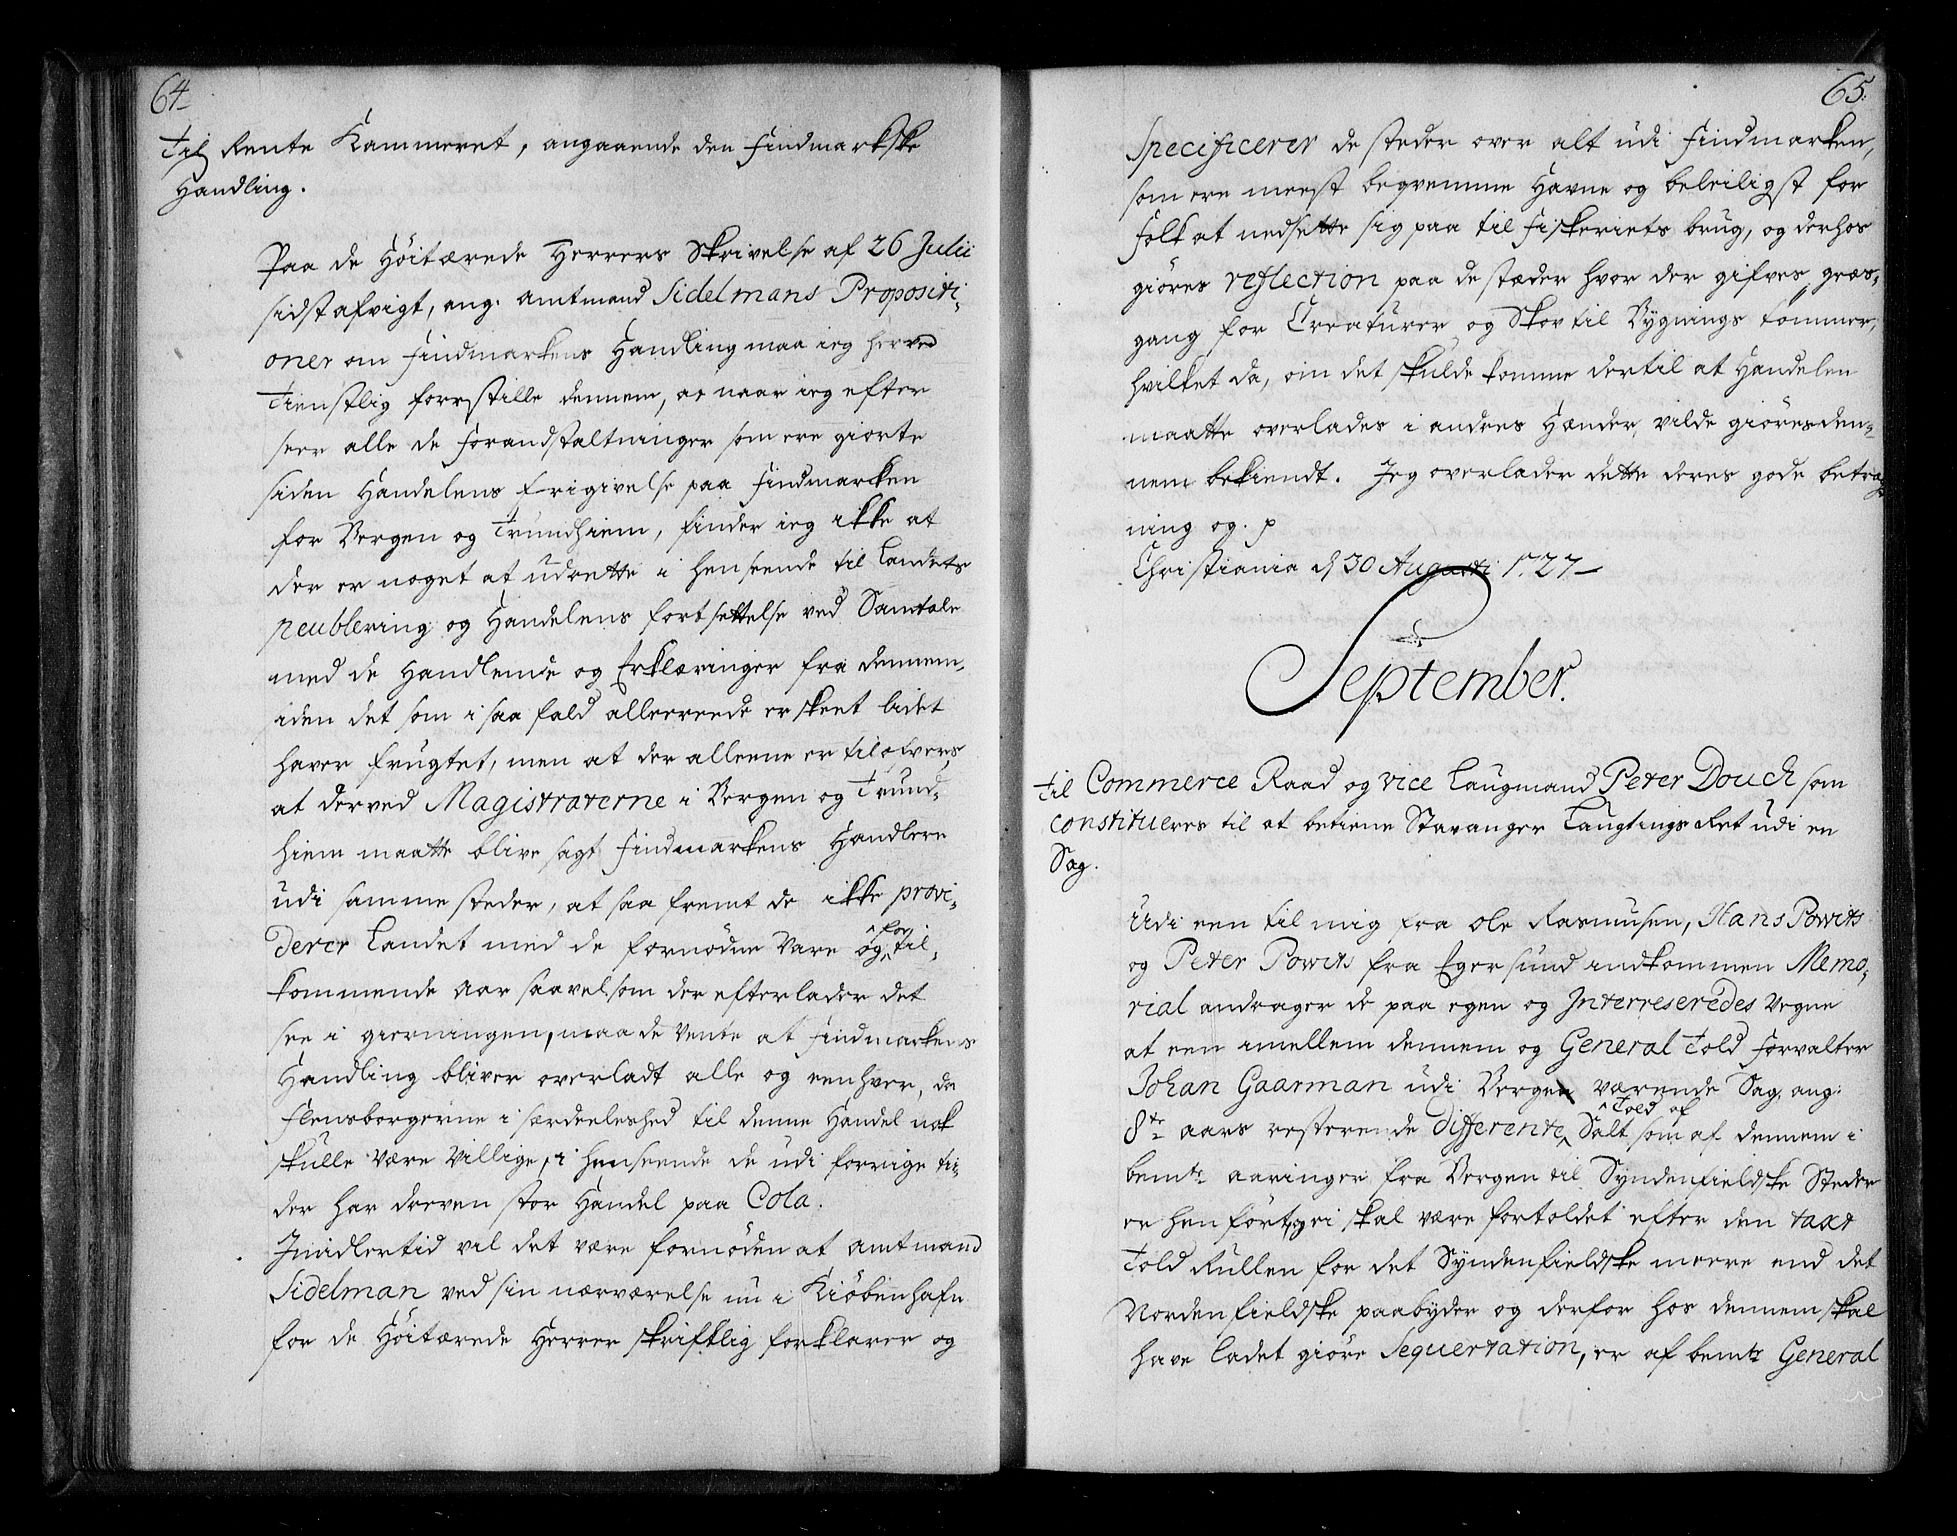 64
Til Rente Kammeret, angaaende den Findmarkske
Handling.
Paa de Høitærede Herrers Skrivelse af 26 Julii
sidstafvigt, ang. Amtmand Sidelmans Propositi-
oner om Findmarkens Handling maa ieg herved
tienstlig forrstille dennem, at naar ieg efter
seer alle de forandstaltninger som ere giorte
siden Handelens frigivelse paa Findmarcken
for Bergen og Trundhiem, finder ieg ikke at
der er noget at udrette i henseende til Landets
peublering og Handelens fortsettelse ved Samtale
med de Handlende og Erklæringer fra dennem,
iden det som i saa fald allereede er skeet lidet
haver frugtet, men at der alleene er tilofvers,
at derved Magistraterne i Bergen og Trund-
hiem maatte blive sagt Findmarkens Handlere
udi samme steder, at saa fremt de ikke provi-
derer Landet med de fornødne Vare og for til-
kommende Aar saavelsom der efterlader det
see i gierningen, maa de vente at Findmarkens
Handling bliver overladt alle og eenhver, da
Flensborgerne i særdeeleshed til denne Handel nok
skulle være villige, i henseende de udi forrige ti-
der har dreven stor Handel paa Cola.
Imidlertid vil det være fornøden at Amtmand
Sidelman ved sin nærværelse nu i Kiøbenhafn
for de Høitærede Herrer skriftlig forklarer og
65.
Specificerer de steder over alt udi Findmarken,
som ere meest beqvemme Havne og beleiligst for
Folk at nedsette sig paa til Fiskeriets brug, og derhos
giøres reflection paa de stæder hvor der gifves græs-
gang for Creaturer og Skov til Bygnings tømmer,
hvilket da, om det skulde komme dertil at Handelen
maatte overlades i andres Hænder, vilde giøres den-
nem bekiendt. Jeg overlader dette deres gode betrag
ning og. p
Christiania d 30 Augusti 1727
September.
Til Commerce Raad og vice Laugmand Peter Douch som
constitueres til at betiene Stavanger Laugtings Ret udi en
Sag.
Udi een til mig fra Ole Rasmusen, Hans Powits
og Peter Powits fra Egersund indkommen Memo-
rial andrager de paa egen og Interreseredes Vegne
at een imellem dennem og General Told Forvalter
Johan Gaarman udi Bergen værende Sag, ang:
8te aars resterende differente Told af Salt som af dennem i
bemte aaringer fra Bergen til Syndenfieldske Steder
er henført, ei skal være fortoldet efter den taxt
Told Rullen for det Syndenfieldske meere end det
Nordenfieldske paabyder og derfor hos dennem skal
have Ladet giøre Sequertation, er af bemte General